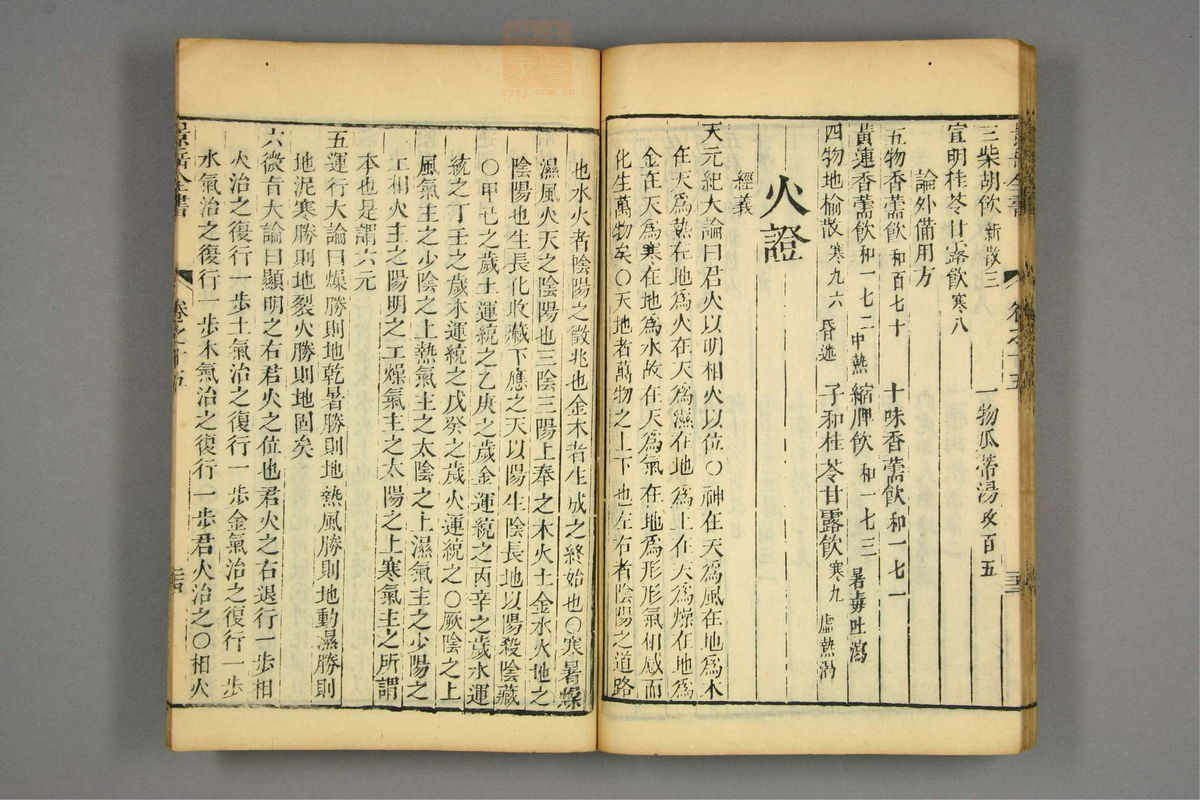 三柴胡飲新散三　一物瓜蒂湯攻百五
宜明桂苓甘露飲寒八
論外備用方
五物香薷飲和百七十　十味香薷飲和一七一
黃連香薷飲和一七二中熱　縮脾飲和一七三暑毒吐瀉
四物地榆散寒九六昏迷　子和桂苓甘露飲寒九虛熱渴
火證
經義
天元紀大論曰君火以明相火以位〇神在天爲風在地爲木
在天爲熱在地爲火在天爲濕在地爲土在天爲燥在地爲
金在天爲寒在地爲水故在天爲氣在地爲形形氣相感而
化生萬物矣〇天地者萬物之上下也左右者陰陽之道路
也水火者陰陽之徵兆也金木者生成之終始也〇寒暑燥
濕風火天之陰陽也三陰三陽上奉之木火土金水火地之
陰陽也生長化收藏下應之天以陽生陰長地以陽殺陰藏
〇甲己之歲土運統之乙庚之歲金運統之丙辛之歲水運
統之丁壬之歲木運統之戊癸之歲火運統之〇厥陰之上
風氣主之少陰之上熱氣主之太陰之上濕氣主之少陽之
上相火主之陽明之上燥氣主之太陽之上寒氣主之所謂
本也是謂六元
五運行大論曰燥勝則地乾暑勝則地熱風勝則地動濕勝則
地泥寒勝則地裂火勝則地固矣
六微旨大論曰顯明之右君火之位也君火之右退行一步相
火治之復行一步土氣治之復行一步金氣治之復行一步
水氣治之復行一步木氣治之復行一步君火治之〇相火
景岳全書
卷之十五
三四
zysj.com.cn